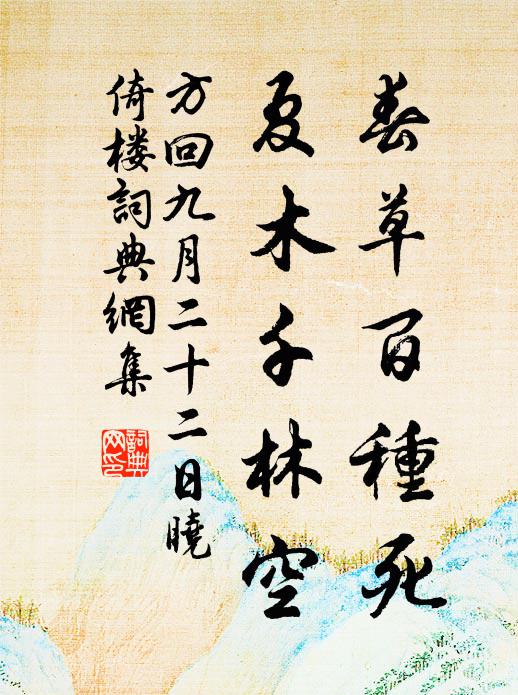 春草百種死
夏木千林空
方回九月二十二日曉
倚楼詞典網集
詞典网印